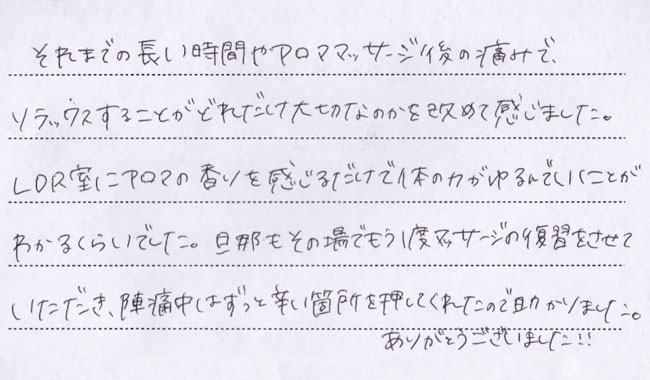 それまでの長い時間やアロママッサージ後の痛みで、
リラックスすることがどれだけ大切なのかを改めて感じました。
LDR室にアロマの香りを感じるだけで体の力がゆるんでいくことが
わかるくらいでした。旦那もその場でもう1度マッサージの復習をさせて
いただき、陣痛中はずっと辛い箇所を押してくれたので助かりました。
ありがとうございました!!